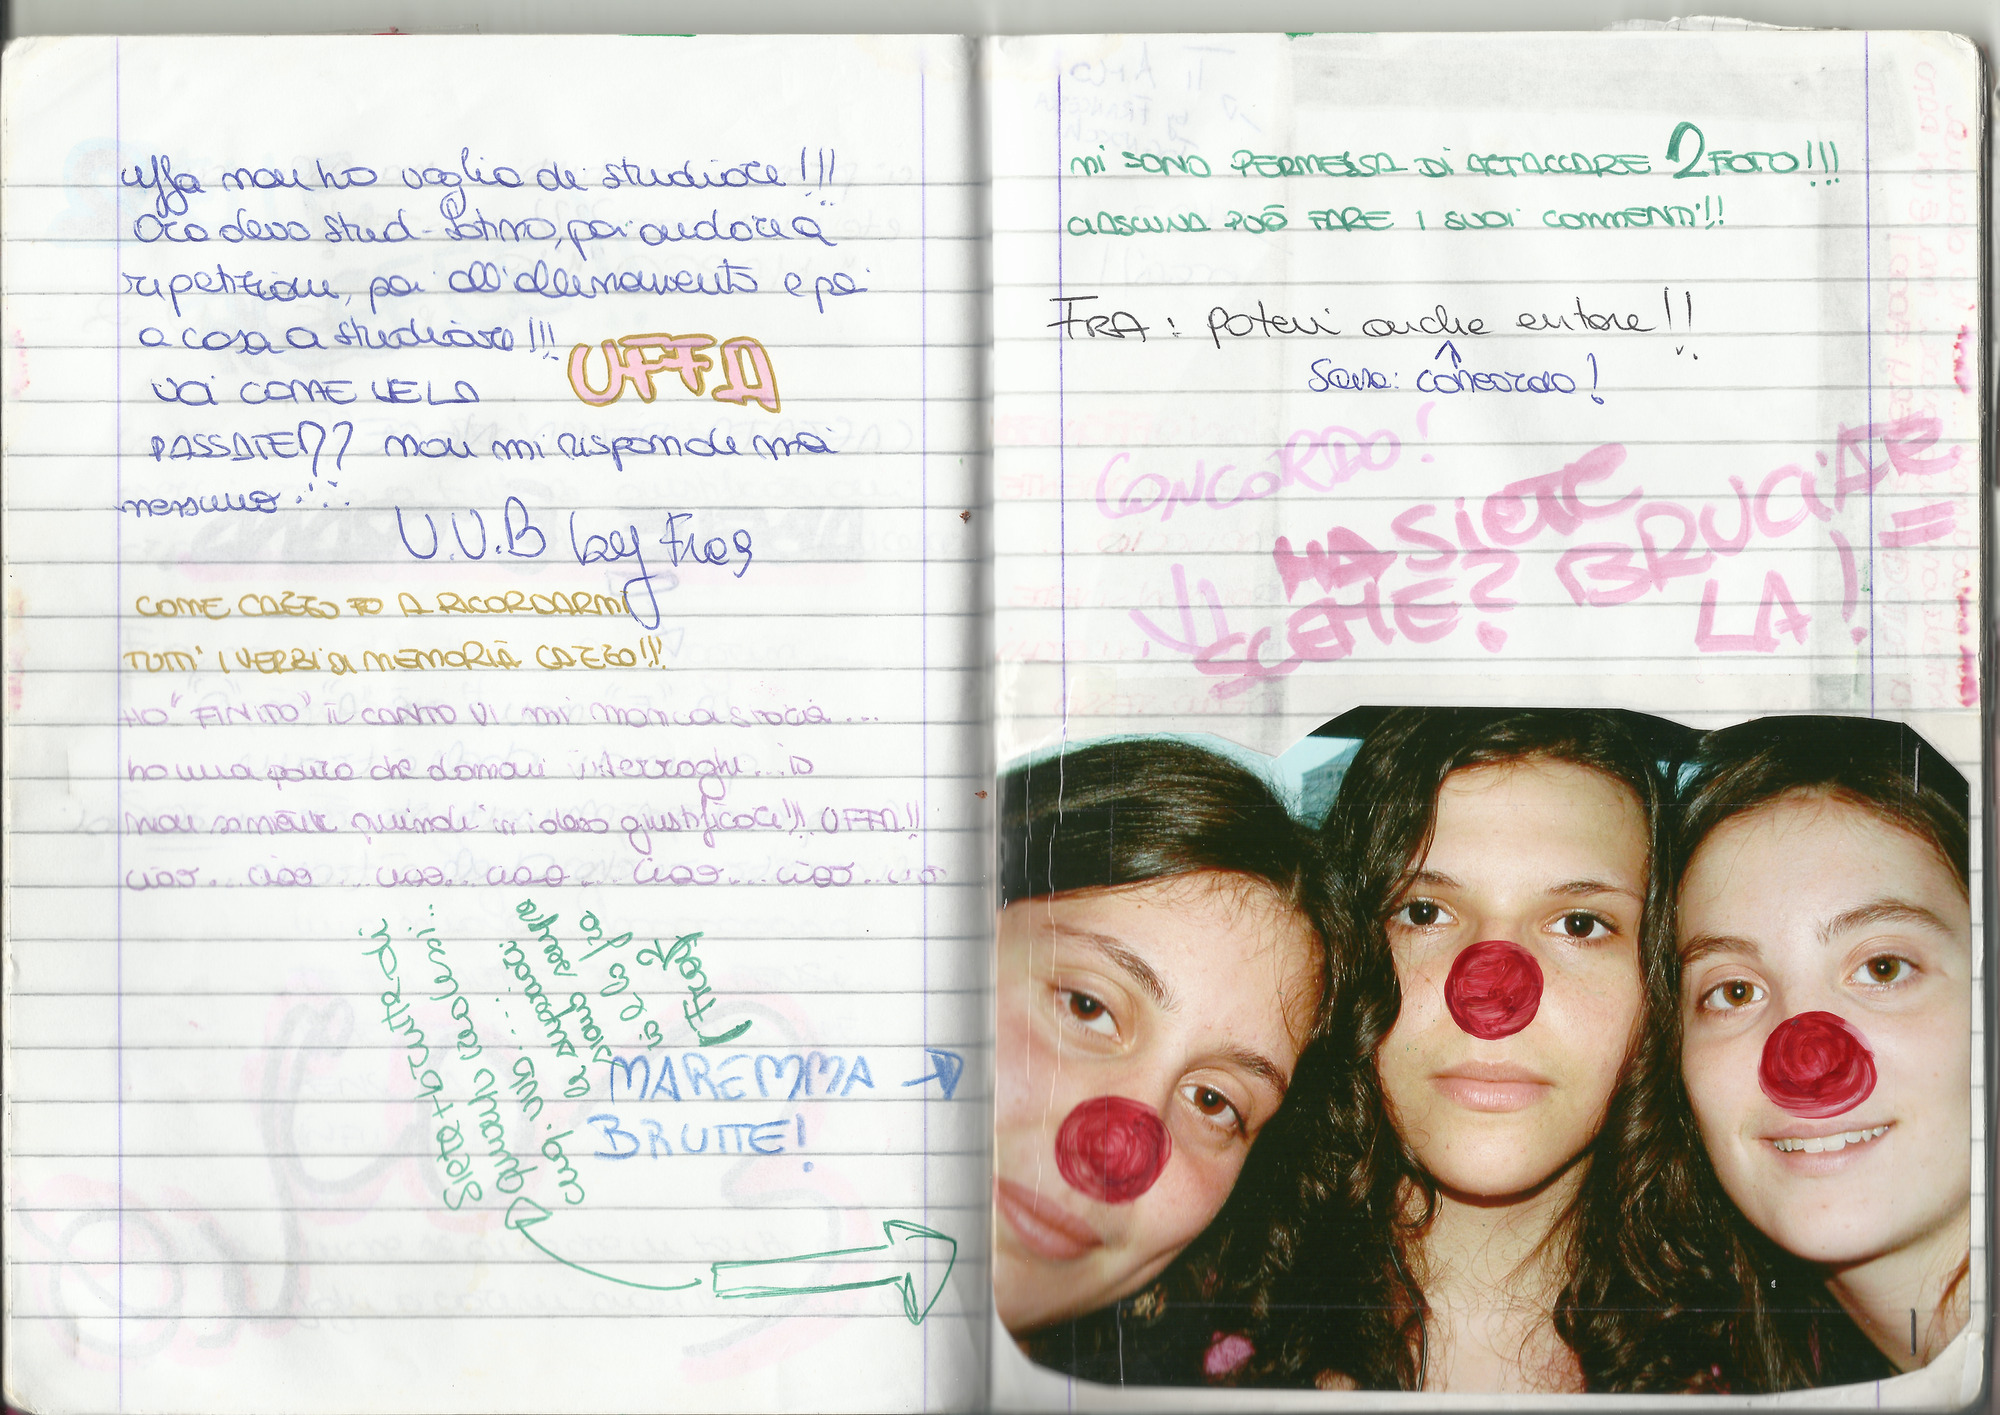 uffa non ho voglia di studiare!!!
Ora devo stud. latino, poi andare a
ripetizione, poi all'allenamento e poi
a casa a studiare!!!
UFFA
VOI COME VE LA
PASSATE?? non mi risponde mai
nessuno...
V.V.B by Frog
COME CAZZO FO A RICORDARMI
TUTTI I VERBI A MEMORIA CAZZO!!!
HO "FINITO" IL CANTO VI mi manca storia...
ho una paura che domani interroghi... io
non so niente quindi mi devo giustificare!!! UFFA!!
ciao... ciao... ciao... ciao... ciao... ciao... ciao
Siete + brutte di
quanto credevi...
cug. VVB...
e
siamo sempre
Frog
MAREMMA
BRUTTE!
MI SONO PERMESSA DI ATTACCARE 2 FOTO!!!
CIASCUNA PUÒ FARE I SUOI COMMENTI!!
FRA: potevi anche evitare!!
Sara: concordo!
CONCORDO!
MA SIETE
SCEME? BRUCIATE
LA!
VI